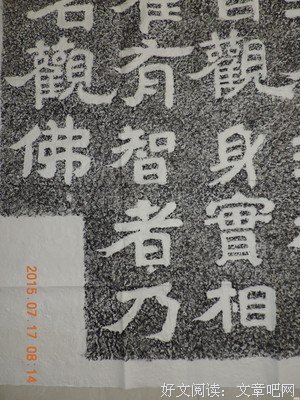 觀身實相
有智者乃
觀佛
2015 07 17 08:14
好文阅读：文章吧网